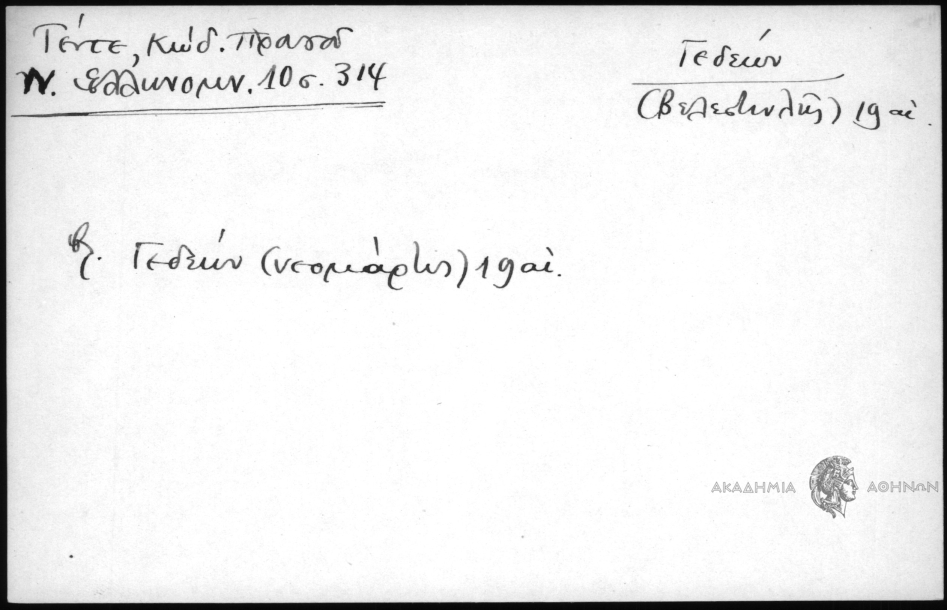 Γέντε, Κώδ. Πραγού
Ν. Ἑλληνομν. 10 σ. 314
Γεδεών
(Βελεστινλῆς) 19 αἰ.
βλ. Γεδεών (νεομάρτυς) 19 αἰ.
ΑΚΑΔΗΜΙΑ ΑΘΗΝΩΝ